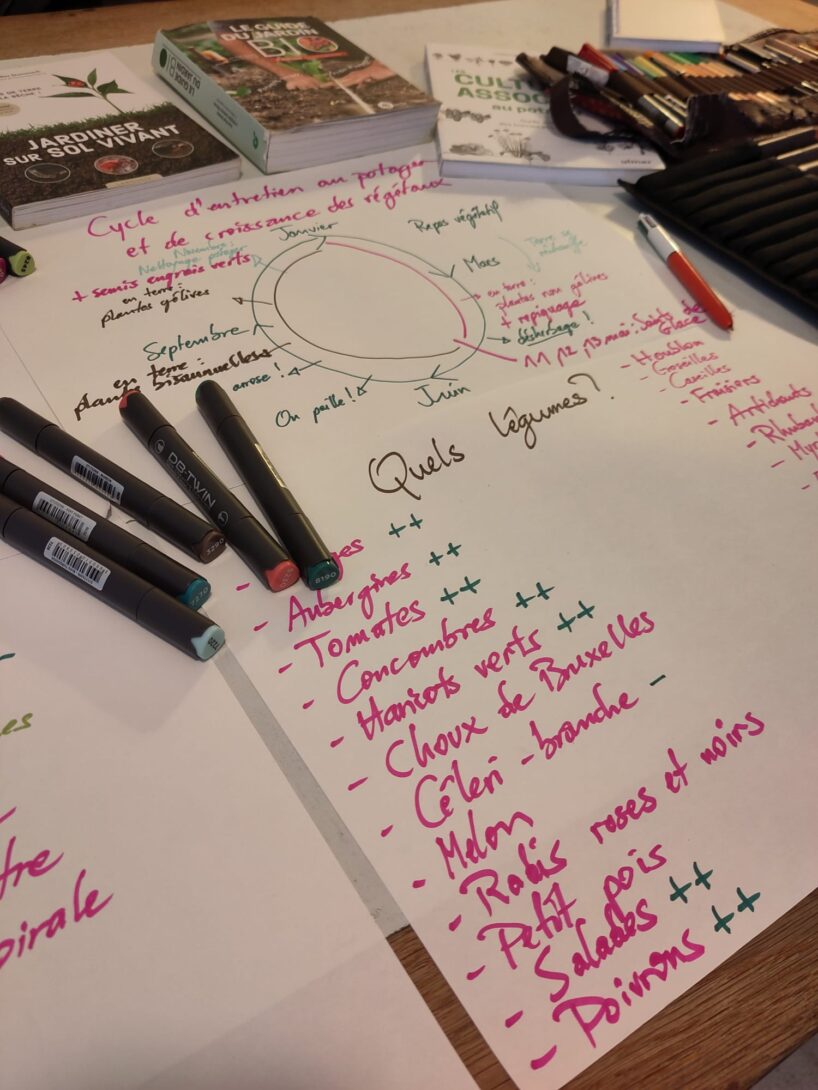 JARDINER
SUR SOL VIVANT
LE GUIDE
DU JARDIN
BIO
LE GUIDE
DU JARDIN
CULTU
ASSOC
au pot
ulmer
Cycle d'entretien au potager
et de croissance des végétaux
Janvier
Repos végétatif
Terre se
réchauffe
Mars
en terre :
plantes non gélives
+ repiquage
désherbage !
11, 12, 13 mai : Saints de
Glace
Juin
On paille !
arrose !
en terre :
plantes bisannuelles
Septembre
en terre :
plantes gélives
+ semis engrais verts
Novembre :
Nettoyage potager
- Houblon
- Groseilles
- Fraisiers
- Artichauts
Quels légumes ?
++
- Aubergines ++
- Tomates ++
- Concombres ++
- Haricots verts ++
- Choux de Bruxelles
- Cêleri - branche -
- Melon
- Radis roses et noirs
- Petit pois
- Salades ++
- Poivrons ++
DB TWIN
3290
8190